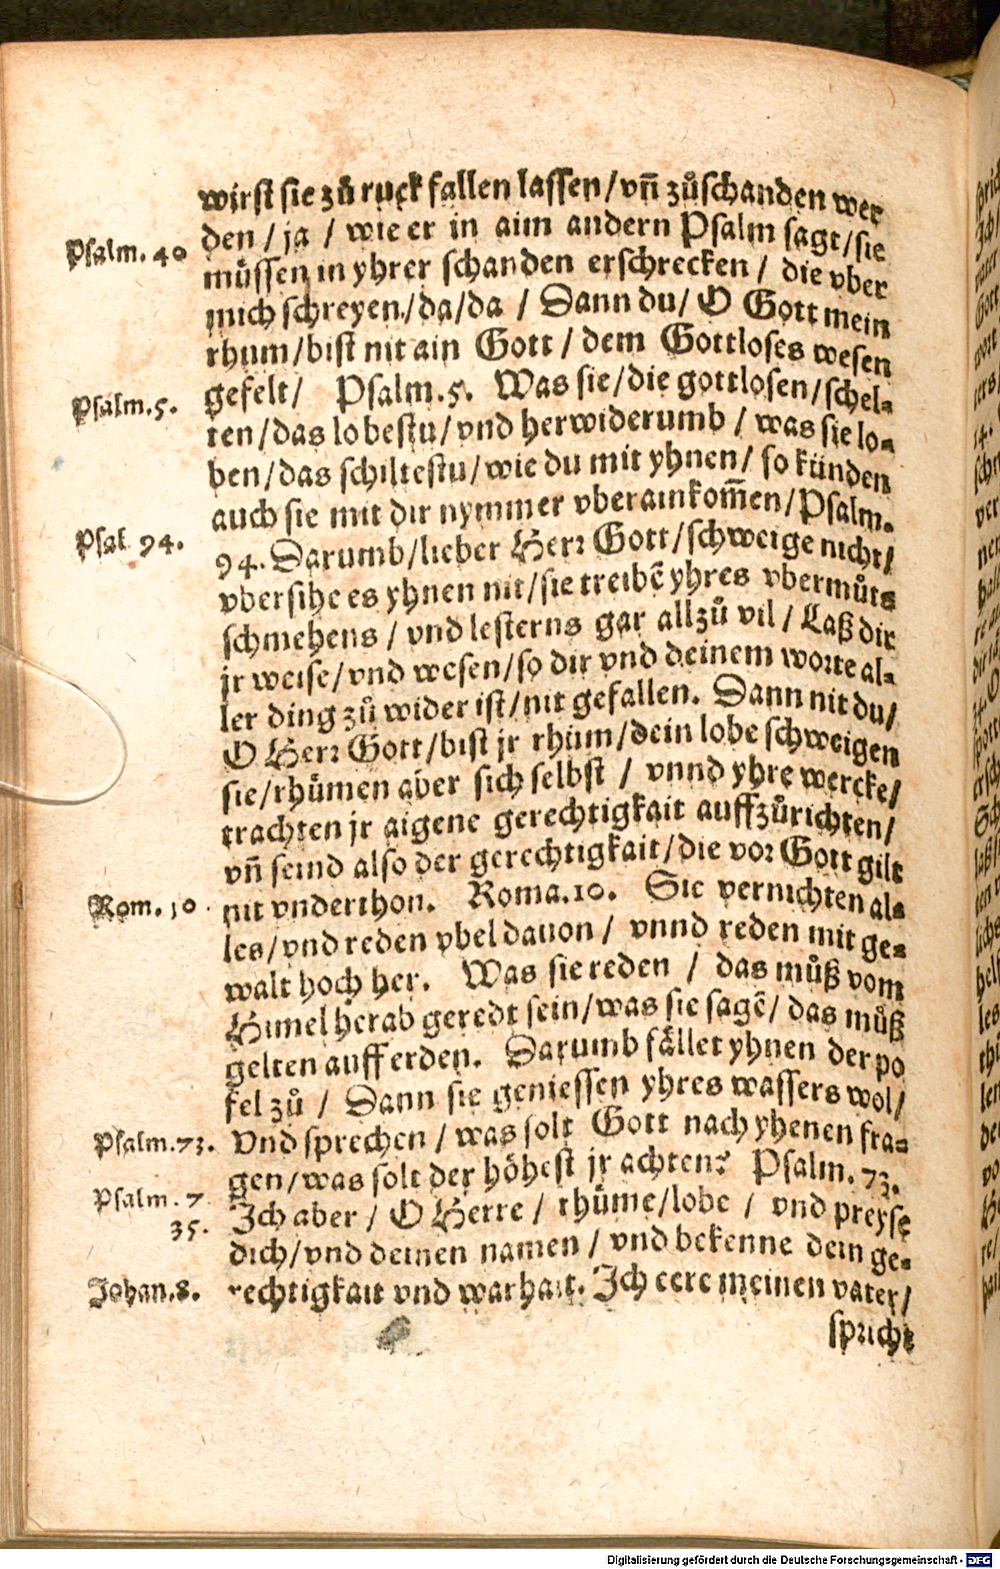 wirst sie zů ruck fallen lassen/vñ zůschanden wer
den / ja / wie er in aim andern Psalm sagt/sie
Psalm. 40
müssen in yhrer schanden erschrecken / die vber
mich schreyen/da/da / Dann du/ O Gott mein
rhum/bist nit ain Gott / dem Gottloses wesen
gefelt/ Psalm.5. Was sie/die gottlosen/schel-
Psalm.5.
ten/das lobestu/vnd herwiderumb / was sie lo-
ben/das schiltestu/wie du mit yhnen/ so künden
auch sie mit dir nymmer vberainkom̃en/Psalm.
Psal 94.
94. Darumb/lieber Herr Gott/schweige nicht/
vbersihe es yhnen nit/sie treibẽ yhres vbermůts
schmehens / vnd lesterns gar allzů vil / Laß dir
jr weise/vnd wesen/so dir vnd deinem worte al-
ler ding zů wider ist/nit gefallen. Dann nit du/
O Herr Gott/bist jr rhům/dein lobe schweigen
sie/rhümen aber sich selbst / vnnd yhre wercke/
trachten jr aigene gerechtigkait auffzůrichten/
vñ seind also der gerechtigkait/die vor Gott gilt
Rom. 10.
nit vnderthon. Roma.10. Sie vernichten al-
les/vnd reden vbel dauon / vnnd reden mit ge-
walt hoch her. Was sie reden / das můß vom
Himel herab geredt sein/was sie sagẽ/ das můß
gelten auff erden. Darumb fället yhnen der po
fel zů / Dann sie geniessen yhres wassers wol/
Psalm.73.
Vnd sprechen / was solt Gott nach yhenen fra-
gen/was solt der höhest jr achten? Psalm.73.
Psalm. 7
35.
Ich aber / O Herre / rhüme/lobe / vnd preyse
dich/vnd deinen namen / vnd bekenne dein ge-
Johan.8.
rechtigkait vnd warhait. Ich eere meinen vater/
spricht
Digitalisierung gefördert durch die Deutsche Forschungsgemeinschaft - DFG